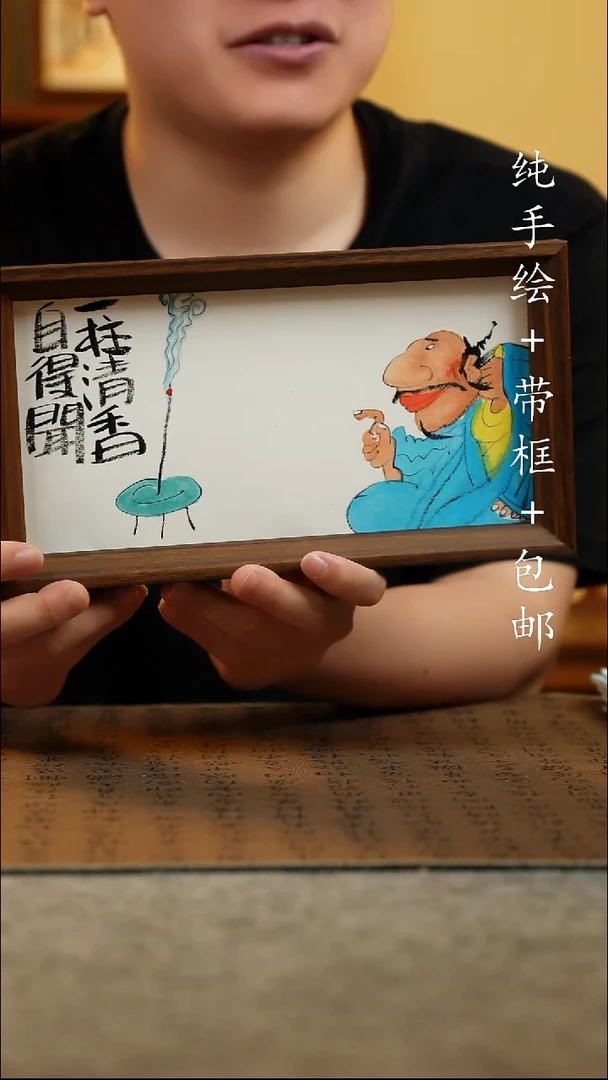 一柱清香
自得聞
纯手绘+带框+包邮